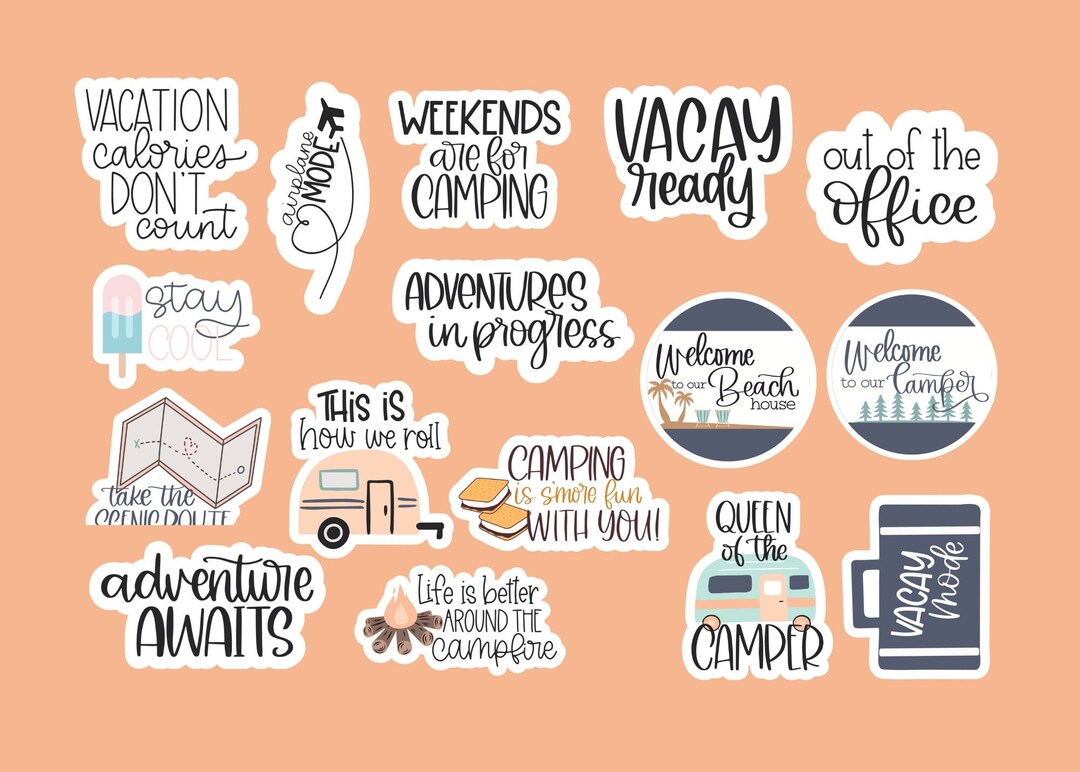 VACATION
calories
DON'T
count
airplane
MODE
WEEKENDS
are for
CAMPING
VACAY
ready
out of the
office
stay
COOL
ADVENTURES
in progress
Welcome
to our Beach
house
Welcome
to our Camper
take the
SCENIC ROUTE
THIS IS
how we roll
CAMPING
is s'more fun
WITH YOU!
QUEEN
of the
CAMPER
VACAY
Mode
adventure
AWAITS
Life is better
AROUND THE
campfire